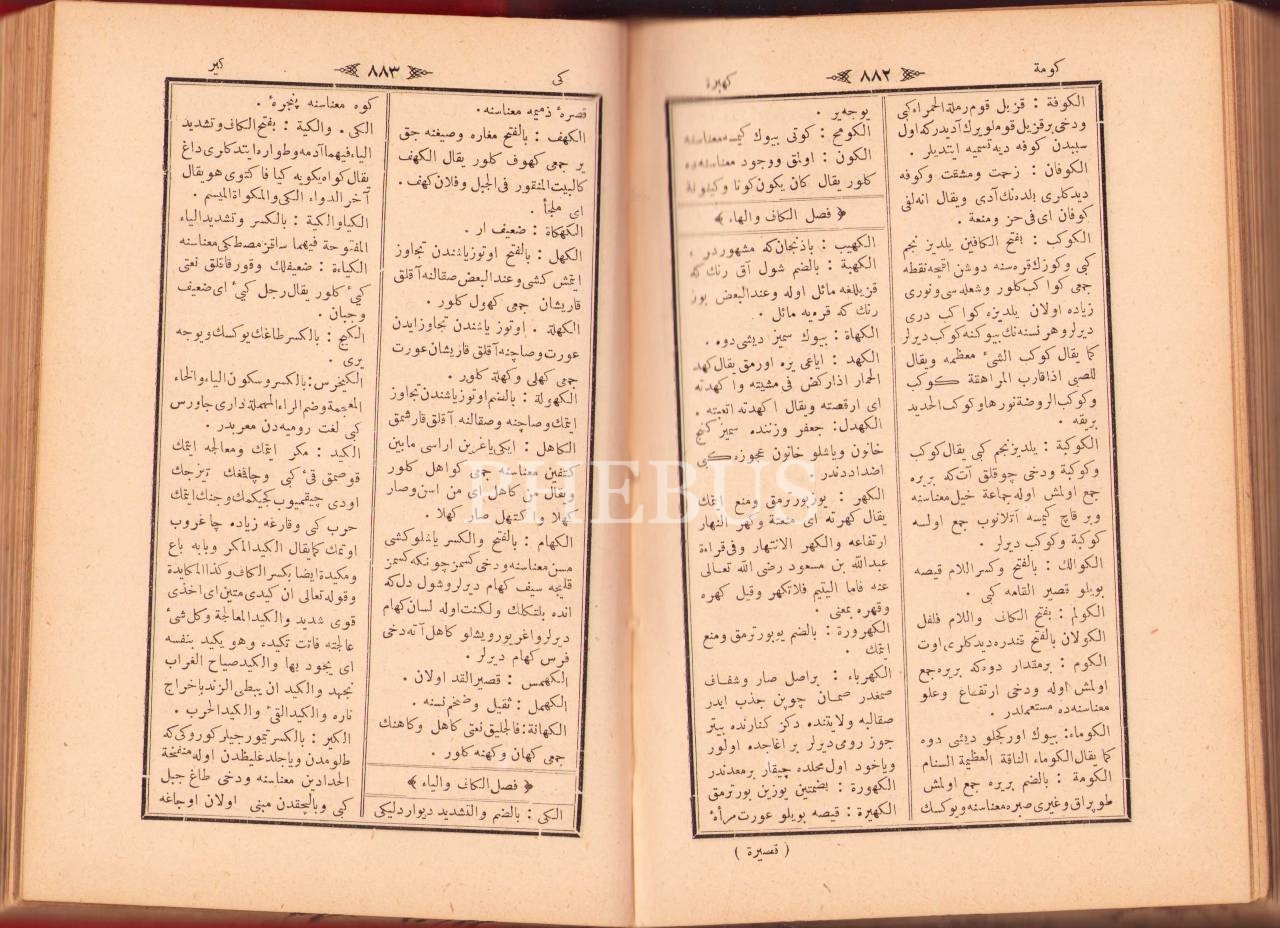 كومة
٨٨٢
كهيرة
الكوفة : قزيل قوم رملة الحمراء كبى
ودخى برقزيل قوملو يرك آديدر كه اول
سببدن كوفه ديه تسميه ايتديلر .
الكوفان : زحمت ومشقت وكوفه
ديدكلرى بلده نك آدى ويقال انه لفى
كوفان اى فى حرز ومنعة .
الكوكب : بفتح الكافين يلديز نجم
كبى وكوزك قره سنه دوشن اقچه نقطه
جمعى كواكب كلور وشعله سى ونورى
زياده اولان يلديزه كواكب درى
ديرلر وهر نسنه نك بيوكنه كوكب ديرلر
كما يقال كوكب الشئ معظمه ويقال
للصبى اذا قارب المراهقة كوكب
وكوكب الروضة نورها وكوكب الحديد
بريقه .
الكوكبة : يلديز نجم كبى يقال كوكب
وكوكبة ودخى چوقلق آت كه بر يره
جمع اولمش اوله جماعة خيل معناسنه
وبر قاچ كيمسه آتلانوب جمع اولسه
كوكبة وكوكب ديرلر .
الكوالك : بالفتح وكسر اللام قيصه
بويلو قصير القامه كبى .
الكولم : بفتح الكاف واللام فلفل
الكولان بالفتح قندره ديدكلرى اوت
الكوم : بر مقدار دوه كه بر يره جمع
اولمش اوله ودخى ارتفاع وعلو
معناسنه ده مستعملدر .
الكوماء : بيوك اوركجلو ديشى دوه
كما يقال الكوماء الناقة العظيمة السنام
الكومة : بالضم بر يره جمع اولمش
طوپراق وغيرى صبره معناسنه ويوكسك
يوجه ير .
الكوميح : كوتى بيوك كيمسه معناسنه
الكون : اولمق ووجود معناسنه ده
كلور يقال كان يكون كونا وكينونة
﴿ فصل الكاف والهاء ﴾
الكهيب : باذنجان كه مشهوردر .
الكهبة : بالضم شول آق رنك كه
قزيللغه مائل اوله وعند البعض بوز
رنك كه قره يه مائل .
الكهاة : بيوك سميز ديشى دوه .
الكهد : اياغى يره اورمق يقال كهد
الحمار اذا ركض فى مشيته واكهدته
اى ارقصته ويقال اكهدته اتعبته .
الكهدل : جعفر وزننده سميز كنج
خاتون وياشلو خاتون عجوزه كبى
اضداددندر .
الكهر : يوز بورتمق ومنع ايتمك
يقال كهرته اى منعتة وكهر النهار
ارتفاعه والكهر الانتهار وفى قراءة
عبدالله بن مسعود رضى الله تعالى
عنه فاما اليتيم فلا تكهر وقيل كهره
وقهره بمعنى .
الكهرورة : بالضم يوز بورتمق ومنع
ايتمك .
الكهرباء : براصل صار وشفاف
صمغدر صمان چوپن جذب ايدر
صقالبه ولايتنده دكز كنارنده بيتر
جوز رومى ديرلر بر اغاجده اولور
وياخود اول محلده چيقار بر معدندر
الكهورة : بضمتين يوزين بورتمق
الكهيرة : قيصه بويلو عورت مرأة
( قصيرة )
كى
٨٨٣
كير
قصرة ذميمه معناسنه .
الكهف : بالفتح مغاره وصيغنه جق
ير جمعى كهوف كلور يقال الكهف
كالبيت المنقور فى الجبل وفلان كهف .
اى ملجأ .
الكهكاة : ضعيف ار .
الكهل : بالفتح اوتوز ياشندن تجاوز
ايتمش كشى وعند البعض صقالنه آقلق
قاريشان جمعى كهول كلور .
الكهلة . اوتوز ياشندن تجاوز ايدن
عورت وصاچنه آقلق قاريشان عورت
جمعى كهلى وكهلة كلور .
الكهولة : بالضم اوتوز ياشندن تجاوز
ايتمك وصاچنه وصقالنه آقلق قارشمق
الكاهل : ايكى ياغرين اراسى مابين
كتفين معناسنه جمعى كواهل كلور
ويقال من كاهل اى من اسن وصار
كهلا واكتهل صار كهلا .
الكهام : بالفتح والكسر ياشلو كشى
مسن معناسنه ودخى كسمز چونكه كسمز
قليجه سيف كهام ديرلر وشول دل كه
انده بلتكلك ولكنت اوله لسان كهام
ديرلر واغر يوريشلو كاهل آته دخى
فرس كهام ديرلر .
الكهمس : قصير القد اولان .
الكهمل : ثقيل وضخم نسنه .
الكهانة : فالجيلق نعتى كاهل وكاهنك
جمعى كهان وكهنه كلور .
﴿ فصل الكاف والياء ﴾
الكى : بالضم والتشديد ديوار دليكى
كوه معناسنه پنجرة .
الكى . والكية : بفتح الكاف وتشديد
الياء فيهما آدمه وطواره ايتدكلرى داغ
يقال كواه يكويه كيا فاكتوى هو يقال
آخر الدواء الكى والمكواة الميسم .
الكيا والكية : بالكسر وتشديد الياء
المفتوحة فيهما ساقز مصطكى معناسنه
الكياءة : ضعيفلك وقورقاقلق نعتى
كيئ كلور يقال رجل كيئ اى ضعيف
وجبان .
الكيح : بالكسر طاغك يوكسك ويوجه
يرى .
الكيخرس : بالكسر وسكون الياء والخاء
المعجمة وضم الراء المهملة دارى جاورس
كبى لغت روميه دن معربدر .
الكيد : مكر ايتمك ومعالجه ايتمك
قوصمق قئ كبى وچاقمغك تيزجك
اودى چيقميوب كجيكمك وجنك ايتمك
حرب كبى وقارغه زياده چاغروب
اوتمك كما يقال الكيد المكر وبابه باع
ومكيدة ايضا بكسر الكاف وكذا المكايدة
وقوله تعالى ان كيدى متين اى اخذى
قوى شديد والكيد المعالجة وكل شئ
عالجته فانت تكيده وهو يكيد بنفسه
اى يجود بها والكيد صياح الغراب
نجهد والكيد ان يبطى الزند باخراج
ناره والكيد القئ والكيد الحرب .
الكير : بالكسر تيمورجيلر كوروكى كه
طولومدن وياجلد غليظدن اوله منفخة
الحدادين معناسنه ودخى طاغ جبل
كبى وبالچقدن مبنى اولان اوجاغه
PHEBUS